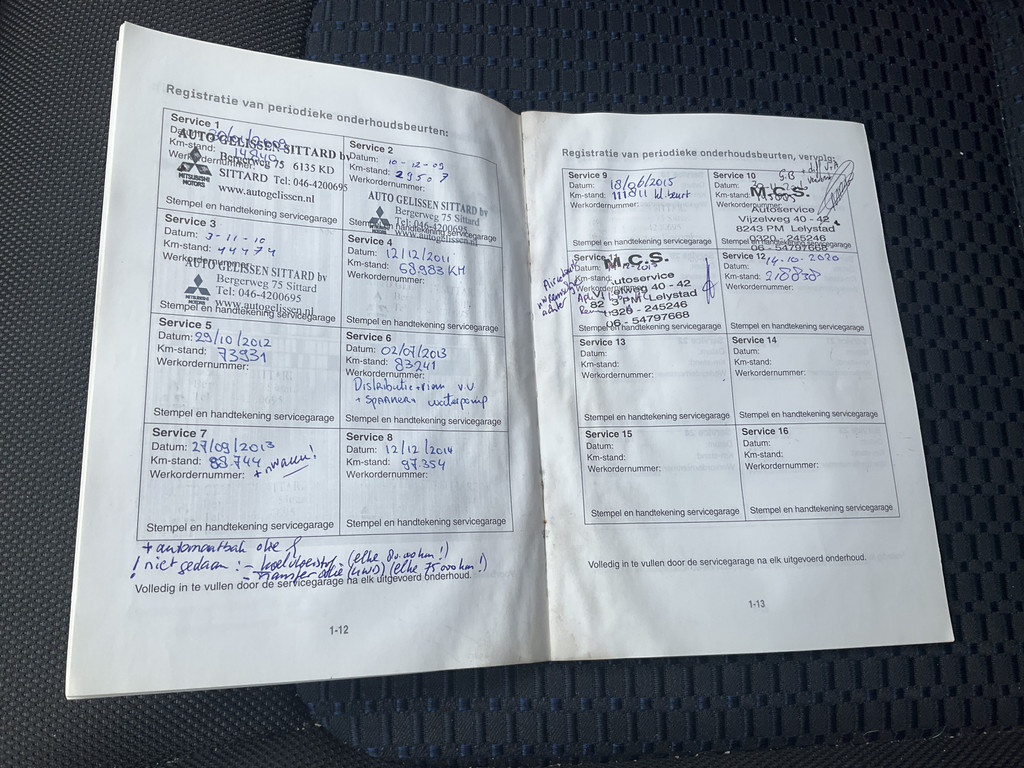 Registratie van periodieke onderhoudsbeurten:
Service 1
Datum:
Km-stand:
AUTO GELISSEN SITTARD bv
Bergerweg 75 6135 KD
SITTARD Tel: 046-4200695
www.autogelissen.nl
MITSUBISHI MOTORS
Stempel en handtekening servicegarage
Service 2
Datum: 10-12-09
Km-stand: 29507
Werkordernummer:
AUTO GELISSEN SITTARD bv
Bergerweg 75 Sittard
Tel: 046-4200695
www.autogelissen.nl
Stempel en handtekening servicegarage
Service 3
Datum: 9-11-10
Km-stand: 44474
Werkordernummer:
AUTO GELISSEN SITTARD bv
Bergerweg 75 Sittard
Tel: 046-4200695
www.autogelissen.nl
MITSUBISHI MOTORS
Stempel en handtekening servicegarage
Service 4
Datum: 12/12/2011
Km-stand: 68983 KM
Werkordernummer:
Stempel en handtekening servicegarage
Service 5
Datum: 29/10/2012
Km-stand: 73931
Werkordernummer:
Stempel en handtekening servicegarage
Service 6
Datum: 02/07/2013
Km-stand: 83241
Werkordernummer:
Distributieriem V.V
+ Spanner + waterpomp
Stempel en handtekening servicegarage
Service 7
Datum: 27/09/2013
Km-stand: 89.744
Werkordernummer:
Stempel en handtekening servicegarage
Service 8
Datum: 12/12/2014
Km-stand: 97.354
Werkordernummer:
Stempel en handtekening servicegarage
+ automaatbak olie
! niet gedaan: - koelvloeistof
- transfer olie (4WD) (elke 75 000 km!)
Volledig in te vullen door de servicegarage na elk uitgevoerd onderhoud.
1-12
Registratie van periodieke onderhoudsbeurten, vervolg:
Service 9
Datum: 18/06/2015
Km-stand: 111811 kl. beurt
Werkordernummer:
Stempel en handtekening servicegarage
Service 10
Datum:
Km-stand:
Werkordernummer:
M.C.S.
Autoservice
Vijzelweg 40 - 42
8243 PM Lelystad
0320 - 245246
06 - 54797668
Stempel en handtekening servicegarage
Datum:
Km-stand:
M.C.S.
Autoservice
Vijzelweg 40 - 42
8243 PM Lelystad
0320 - 245246
06 - 54797668
Stempel en handtekening servicegarage
Service 12
Datum: 14-10-2020
Km-stand: 218838
Werkordernummer:
Stempel en handtekening servicegarage
Service 13
Datum:
Km-stand:
Werkordernummer:
Stempel en handtekening servicegarage
Service 14
Datum:
Km-stand:
Werkordernummer:
Stempel en handtekening servicegarage
Service 15
Datum:
Km-stand:
Werkordernummer:
Stempel en handtekening servicegarage
Service 16
Datum:
Km-stand:
Werkordernummer:
Stempel en handtekening servicegarage
Volledig in te vullen door de servicegarage na elk uitgevoerd onderhoud.
1-13